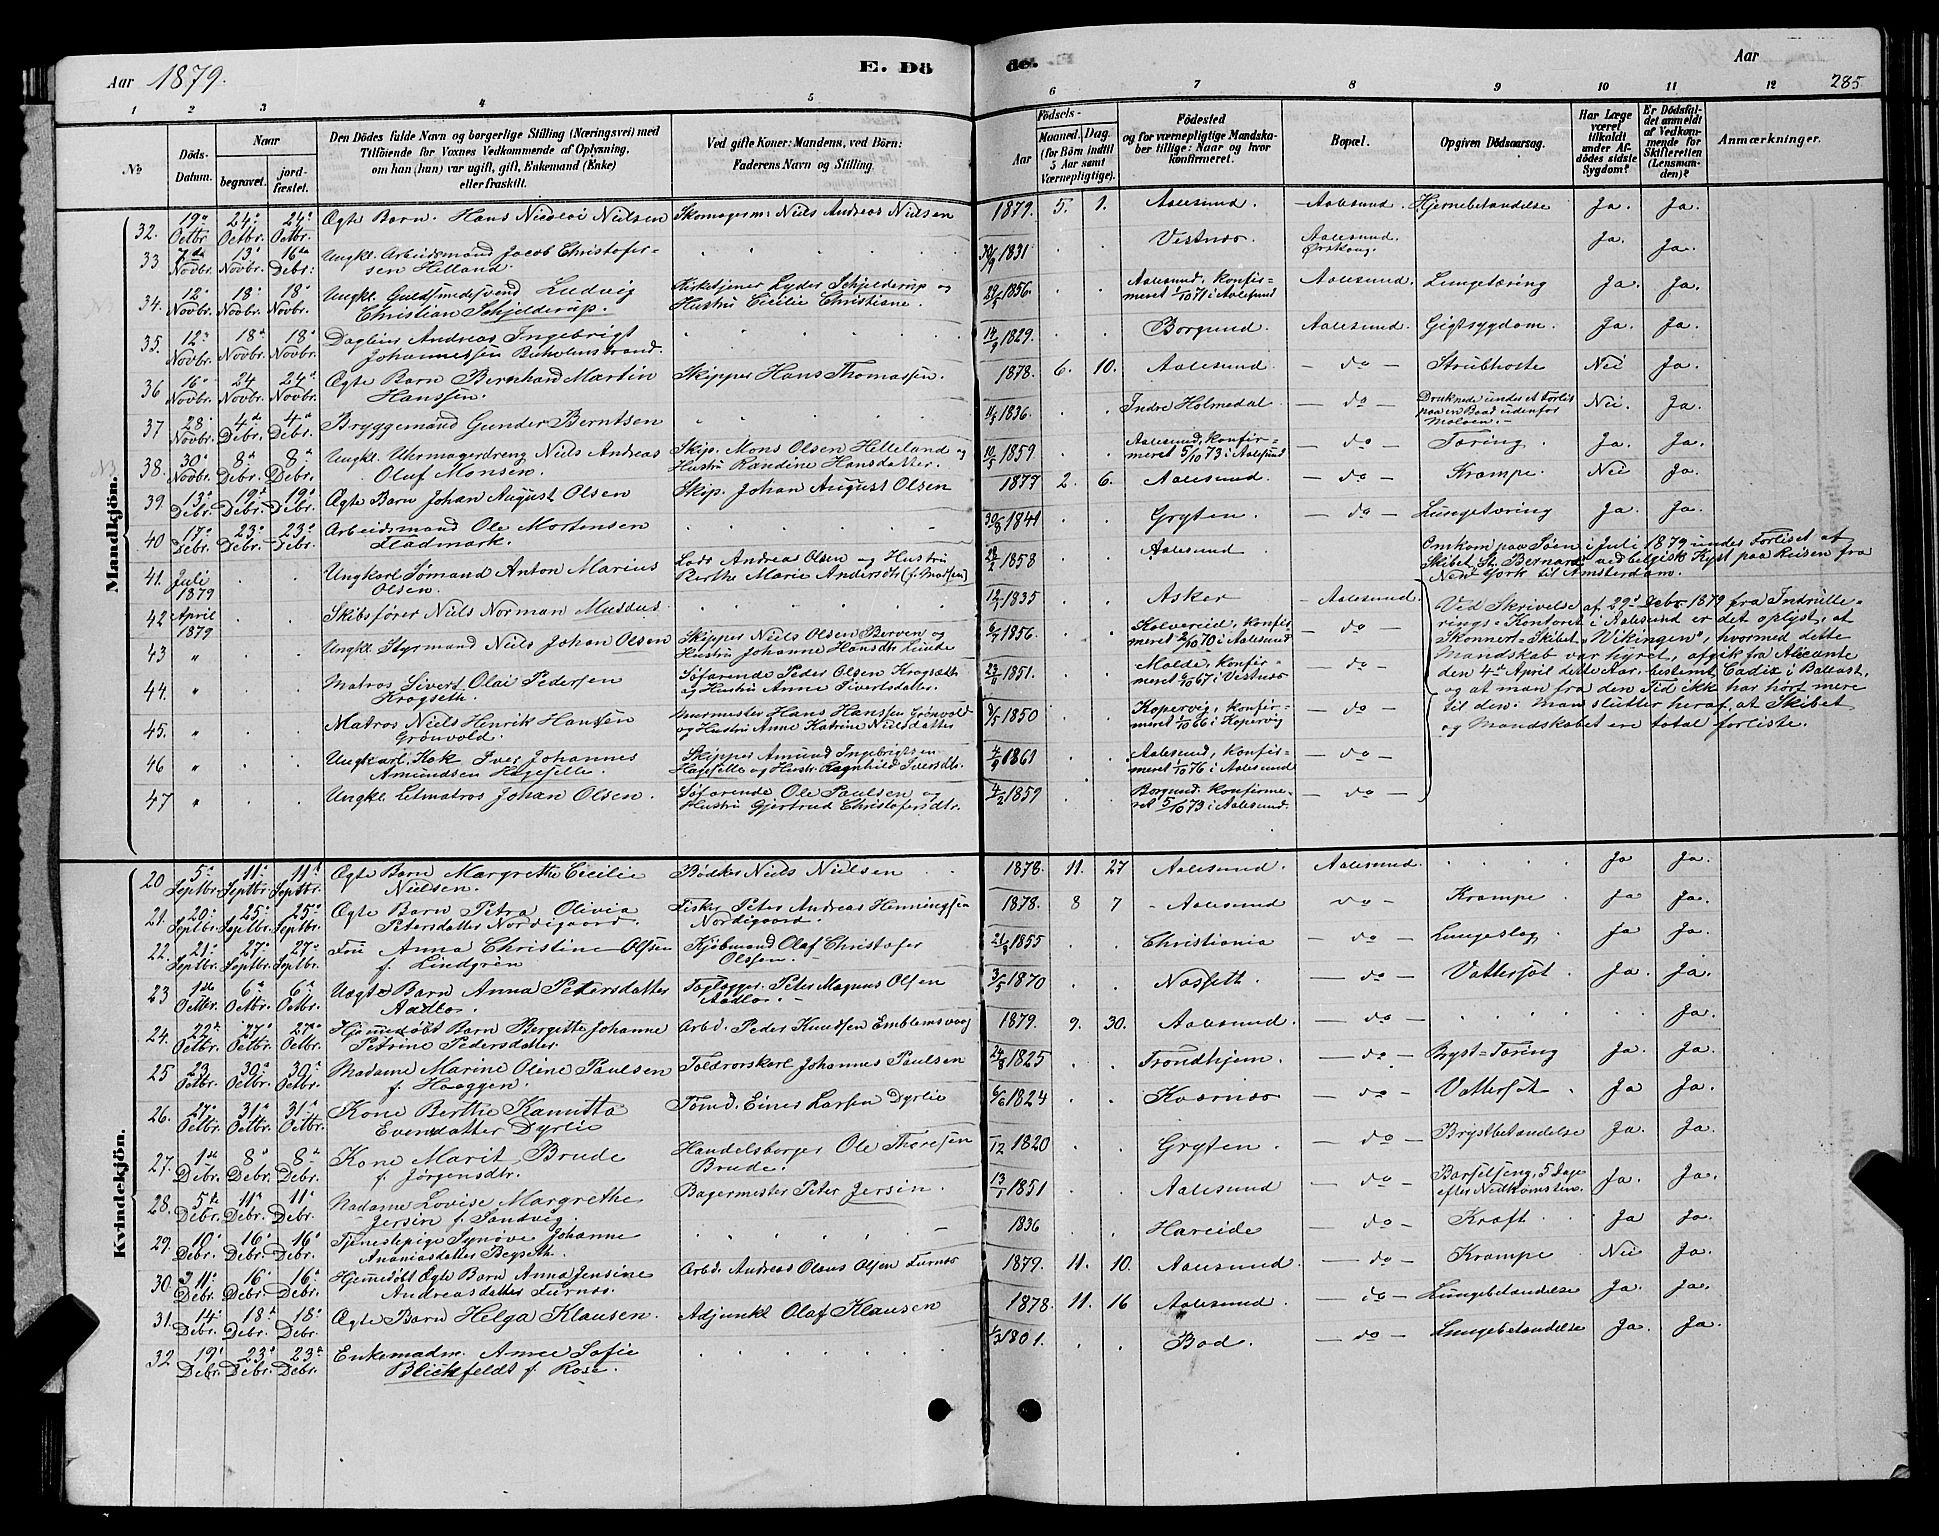 Aar 1879.
E. Dö
de.
Aar
285
1 2 3 4 5 6 7 8 9 10 11 12
No
Döds-Datum.
Naar
begravet.
jordfæstet.
Den Dödes fulde Navn og borgerlige Stilling (Næringsvei) med
Tilföiende for Voxnes Vedkommende af Oplysning,
om han (hun) var ugift, gift, Enkemand (Enke)
eller fraskilt.
Ved gifte Koner: Mandens, ved Börn:
Faderens Navn og Stilling.
Födsels-
Aar
Maaned. Dag.
(for Börn indtil
5 Aar samt
Værnepligtige).
Födested
og for værnepligtige Mandska-
ber tillige: Naar og hvor
konfirmeret.
Bopæl.
Opgiven Dödsaarsag.
Har Læge
været
tilkaldt
under Af-
dödes sidste
Sygdom?
Er Dödsfal-
det anmeldt
af Vedkom-
mende for
Skifteretten
(Lensman-
den)?
Anmærkninger.
Mandkjön.
32. 19de Octbr. 24de Octbr. 24de Octbr. Ægte Barn. Hans Nicolai Nielsen Skomagerm: Niels Andreas Nielsen 1879. 5. 1. Aalesund. Aalesund. Hjernebetændelse Ja. Ja.
33. 7de Novbr. 13de Novbr. 16de Debr: Ungkl. Arbeidsmand Jacob Christofer-
sen Helland. 30/9 1831 Vestnes Aalesund. Ørskoug. Ja. Ja.
34. 12te Novbr. 18de Novbr. 18de Novbr. Ungkl. Guldsmedsvend Ludvig
Christian Schjelderup. Kirketjener Lyder Schjelderup og
Hustru Cecilie Christine. 1856. Aalesund, konfir-
meret 1/10 71 i Aalesund Aalesund. Lungetæring Ja. Ja.
35. 12te Novbr. 18de Novbr. 18de Novbr. Dagleier Andreas Ingebrigt
Johannessen Buholmstrand. 14/9 1829. Borgund. Aalesund. Gigtsygdom. Ja. Ja.
36 16de Novbr. 24 Novbr. 24de Novbr. Ægte Barn Bernhard Martin
Hanssen. Skipper Hans Thomassen. 1878. 6. 10. Aalesund. do Strubhoste Nei Ja.
37 28. Novbr. 4de Debr. 4de Debr. Bryggemand Gunder Berntsen 1836. Indre Holmedal do Druknede under et Forlis
paa en Baad udenfor
Moloen. Nei. Ja
38. 30te Novbr. 8de Debr. 8de Debr. Ungkl. Uhrmagerdreng Niels Andreas
Oluf Monsen. Skip. Mons Olsen Helleland og
Hustru Randine Hansdatter. 10/5 1859 Aalesund, konfir-
meret 5/10 73 i Aalesund do Tæring. Ja. Ja.
39. 13de Debr. 19de Debr. 19de Debr. Ægte Barn Johan August Olsen Skip. Johan August Olsen 1877 2. 6. Aalesund. do Krampe. Nei Ja.
40 17de Debr. 23de Debr. 23de Debr. Arbeidsmand Ole Mortensen
Fladmark. 30/8 1841 Gryten. do Lungetæring Ja. Ja.
41. Juli 1879 Ungkarl Sømand Anton Marius
Olsen. Lods Andreas Olsen og Hustru
Berthe Marie Andersdtr (f. Madsen) 1858 Aalesund Omkom paa Søen i Juli 1879 under Forliset af
Skibet St. Bernard ved belgisk Kyst paa Reisen fra
New York til Amsterdam.
42 April 1879 Skibsfører Niels Norman Musæus. 12/7 1835 Asker Aalesund. Ved Skrivelse af 29de Debr 1879 fra Indrulle-
rings-Kontoret i Aalesund er det oplyst, at
Skonnert-Skibet "Wikingen", hvormed dette
Mandskab var hyret, afgik fra Alicante
den 4de April dette Aar, bestemt Cadix i Ballast,
og at man fra den Tid ikk har hørt mere
til den. Man slutter heraf, at Skibet
og Mandskabet ere total forliste.
43 " Ungkl. Styrmand Niels Johan Olsen Skipper Niels Olsen Berven og
Hustru Johanne Hansdtr Linde 1856. Kolvereid, konfir-
meret 2/10 70 i Aalesund do
44. " Matros Sivert Olai Pedersen
Krogseth. Søfarende Peder Olsen Krogseth
og Hustru Anne Sivertsdatter. 1851. Molde, konfir-
meret 6/10 67 i Vestnes do
45. " Matros Niels Henrik Hansen
Grønvold. Murmester Hans Hanssen Grønvold
og Hustru Anne Katrine Nielsdatter 1850 Kopervig, konfir-
meret 1/10 66 i Kopervig do
46 " Ungkarl, Kok Iver Johannes
Amundsen Hagesille. Skipper Amund Ingebrigtsen
Hagesille og Hustr. Ragnhild Iversdtr. 1861 Aalesund, konfir-
meret 1/10 76 i Aalesund do
47 " Ungkl. Letmatros Johan Olsen. Søfarende Ole Paulsen og
Hustru Gjertrud Christofersdtr. 4/2 1859 Borgund. konfirme-
ret 5/10 73 i Aalesund. do
Kvindekjön.
20 5te Septbr. 11te Septbr. 11te Septbr. Ægte Barn Margrethe Cicilie
Nielsen. Bødker Niels Nielsen 1878. 11. 27 Aalesund Aalesund. Ja Ja.
21. 20de Septbr. 25de Septbr. 25de Septbr. Ægte Barn Petra Olivia
Petersdatter Nordigaard. Fisker Peter Andreas Henningsen
Nordigaard. 1878. 8 7 Aalesund do Krampe Ja Ja.
22. 21de Septbr. 27de Septbr. 27de Septbr. Fru Anna Christine Olsen
f. Lindgrén Kjøbmand Olaf Christofer
Olssen. 21/8 1855 Christiania do Lungeslag Ja Ja.
23 1ste Octbr. 6te Octbr. 6te Octbr. Uægte Barn Anna Petersdatter
Aadloe. Toglogger Peter Magnus Olsen
Aadloe. 3/5 1870 Næsseth. do Vattersot. Ja. Ja.
24. 22de Octbr. 27de Octbr. 27de Octbr. Hjemmedøbt Barn Bergitte Johanne
Petrine Pedersdatter. Arbd. Peder Knudsen Emblemsvaag 1879. 9. 30. Aalesund. do Ja.
25 23. Octbr. 30te Octbr. 30te Octbr. Madame Marine Oline Paulsen
f. Haaggen. Toldrorskarl Johannes Paulsen 24/8 1825 Trondhjem. do Bryst=Tæring Ja. Ja.
26. 27de Octbr. 31te Octbr. 31te Octbr. Kone Berthe Kanutta
Evensdatter Dyrlie Tømd. Einer Larsen Dyrlie 6/6 1824 Kvernes do Vattersot. Ja Ja.
27. 1ste Debr. 8de Debr. 8de Debr. Kone Marit Brude
f. Jørgensdtr. Handelsborger Ole Thoresen
Brude. 1820 Gryten. do Brystbetændelse Ja. Ja.
28. 5te Debr. 11te Debr. 11te Debr. Madame Lovise Margrethe
Jersin f. Sandvig. Bagermester Peter Jersin. 13/1 1851 Aalesund do Barselseng, 5 Dage
efter Nedkomsten. Ja. Ja.
29. 10de Debr. 16de Debr. 16de Debr. Tjenestepige Synøve Johanne
Ananiasdatter Beyseth. 1836 Hareide do Kræft Ja Ja.
30. 11te Debr. 16de Debr. 16de Debr. Hjemmedøbt Ægte Barn Anna Jensine
Andreasdatter Furnes. Arbd. Andreas Olaus Olsen Furnes 1879. 11. 10. Aalesund. do Krampe Nei Ja.
31. 14de Debr. 18de Debr. 18de Debr. Ægte Barn Helga Klausen. Adjunkt Olaf Klausen 1878. 11. 16 Aalesund. do Lungebetændelse Ja. Ja.
32. 19de Debr. 23de Debr. 23de Debr. Enkemadm. Anne Sofie
Blichfeldt f. Rose. 1801. Bod. do Lungebetændelse Ja. Ja.